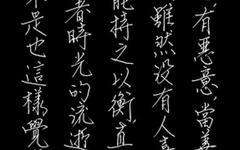 有惡意,當善
雖然沒有人喜
能持之以衡直
著時光的流逝
不是也這樣覺